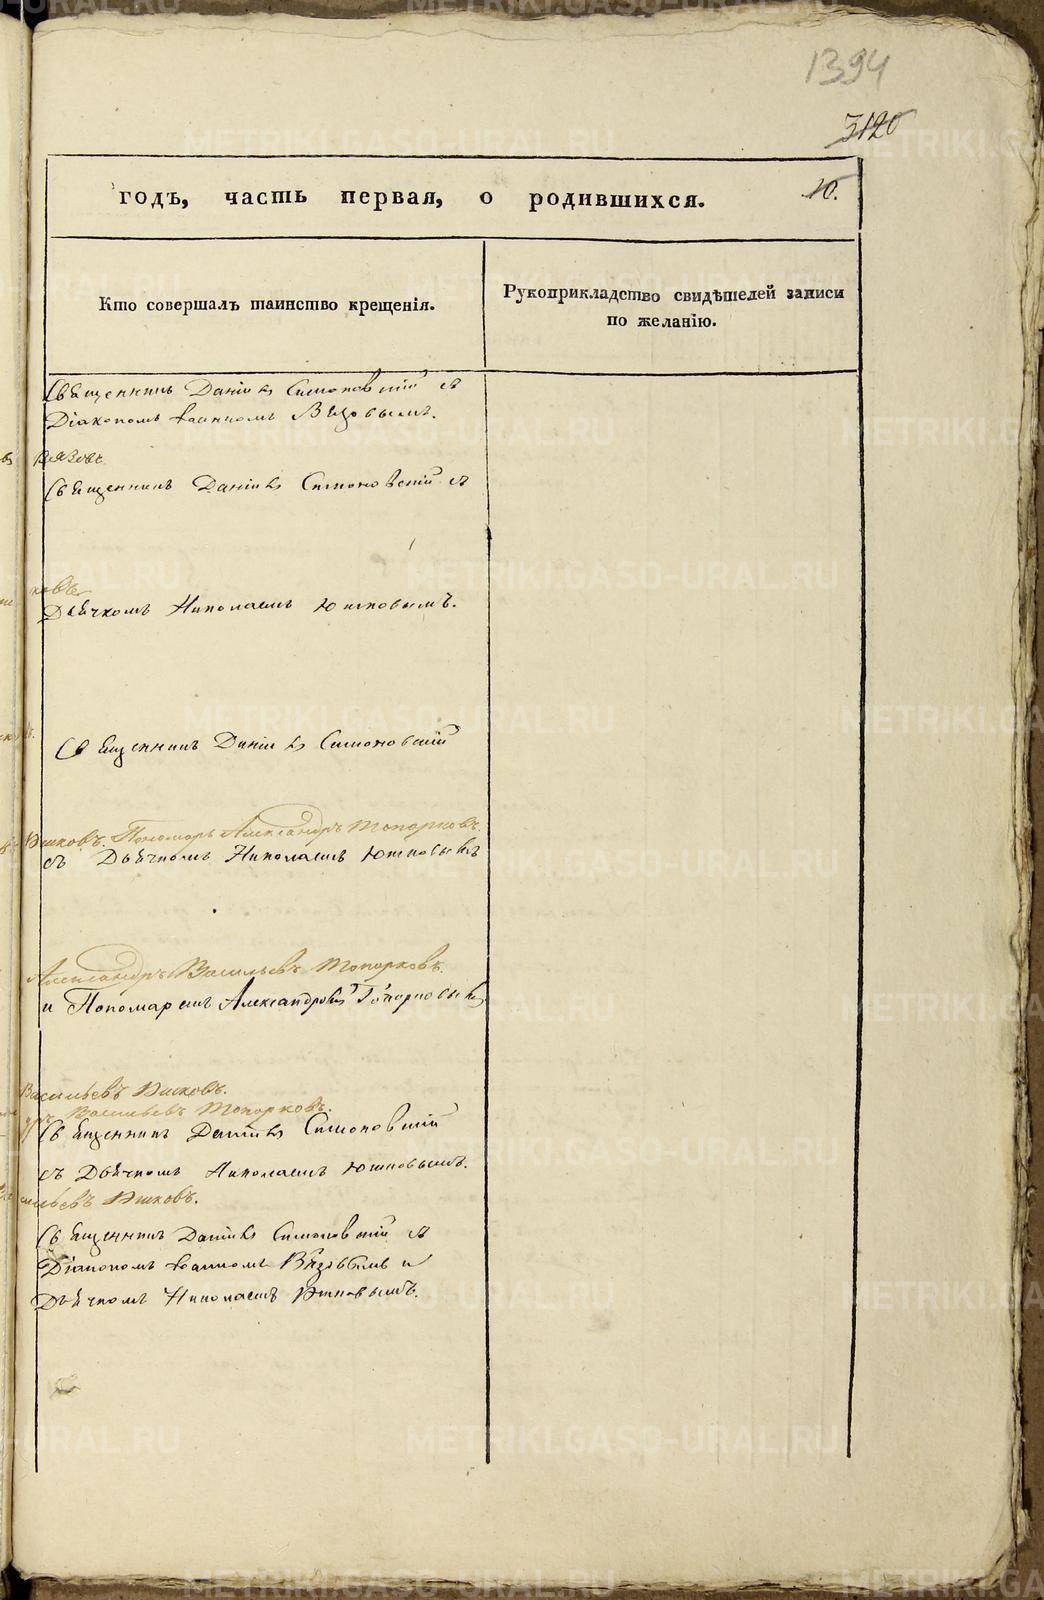 1394
3120
10.
годъ, часть первая, о родившихся.
Кто совершалъ таинство крещенія.
Рукоприкладство свидѣтелей записи
по желанію.
Священникъ Даніилъ Симоновскій съ
Діакономъ Іоанномъ Вязовымъ.
Вязовъ
Священникъ Даніилъ Симоновскій съ
ковъ
Дьячкомъ Николаемъ Юшковымъ.
Священникъ Даніилъ Симоновскій
Юшковъ. Пономарь Александръ Топорковъ.
съ Дьячкомъ Николаемъ Юшковымъ
Александръ Васильевъ Топорковъ.
и Пономаремъ Александромъ Топорковымъ
Васильевъ Юшковъ.
Васильевъ Топорковъ.
Священникъ Даніилъ Симоновскій
съ Дьячкомъ Николаемъ Юшковымъ.
сильевъ Юшковъ.
Священникъ Даніилъ Симоновскій съ
Діакономъ Іоанномъ Вязовымъ и
Дьячкомъ Николаемъ Юшковымъ.
METRIKI.GASO-URAL.RU